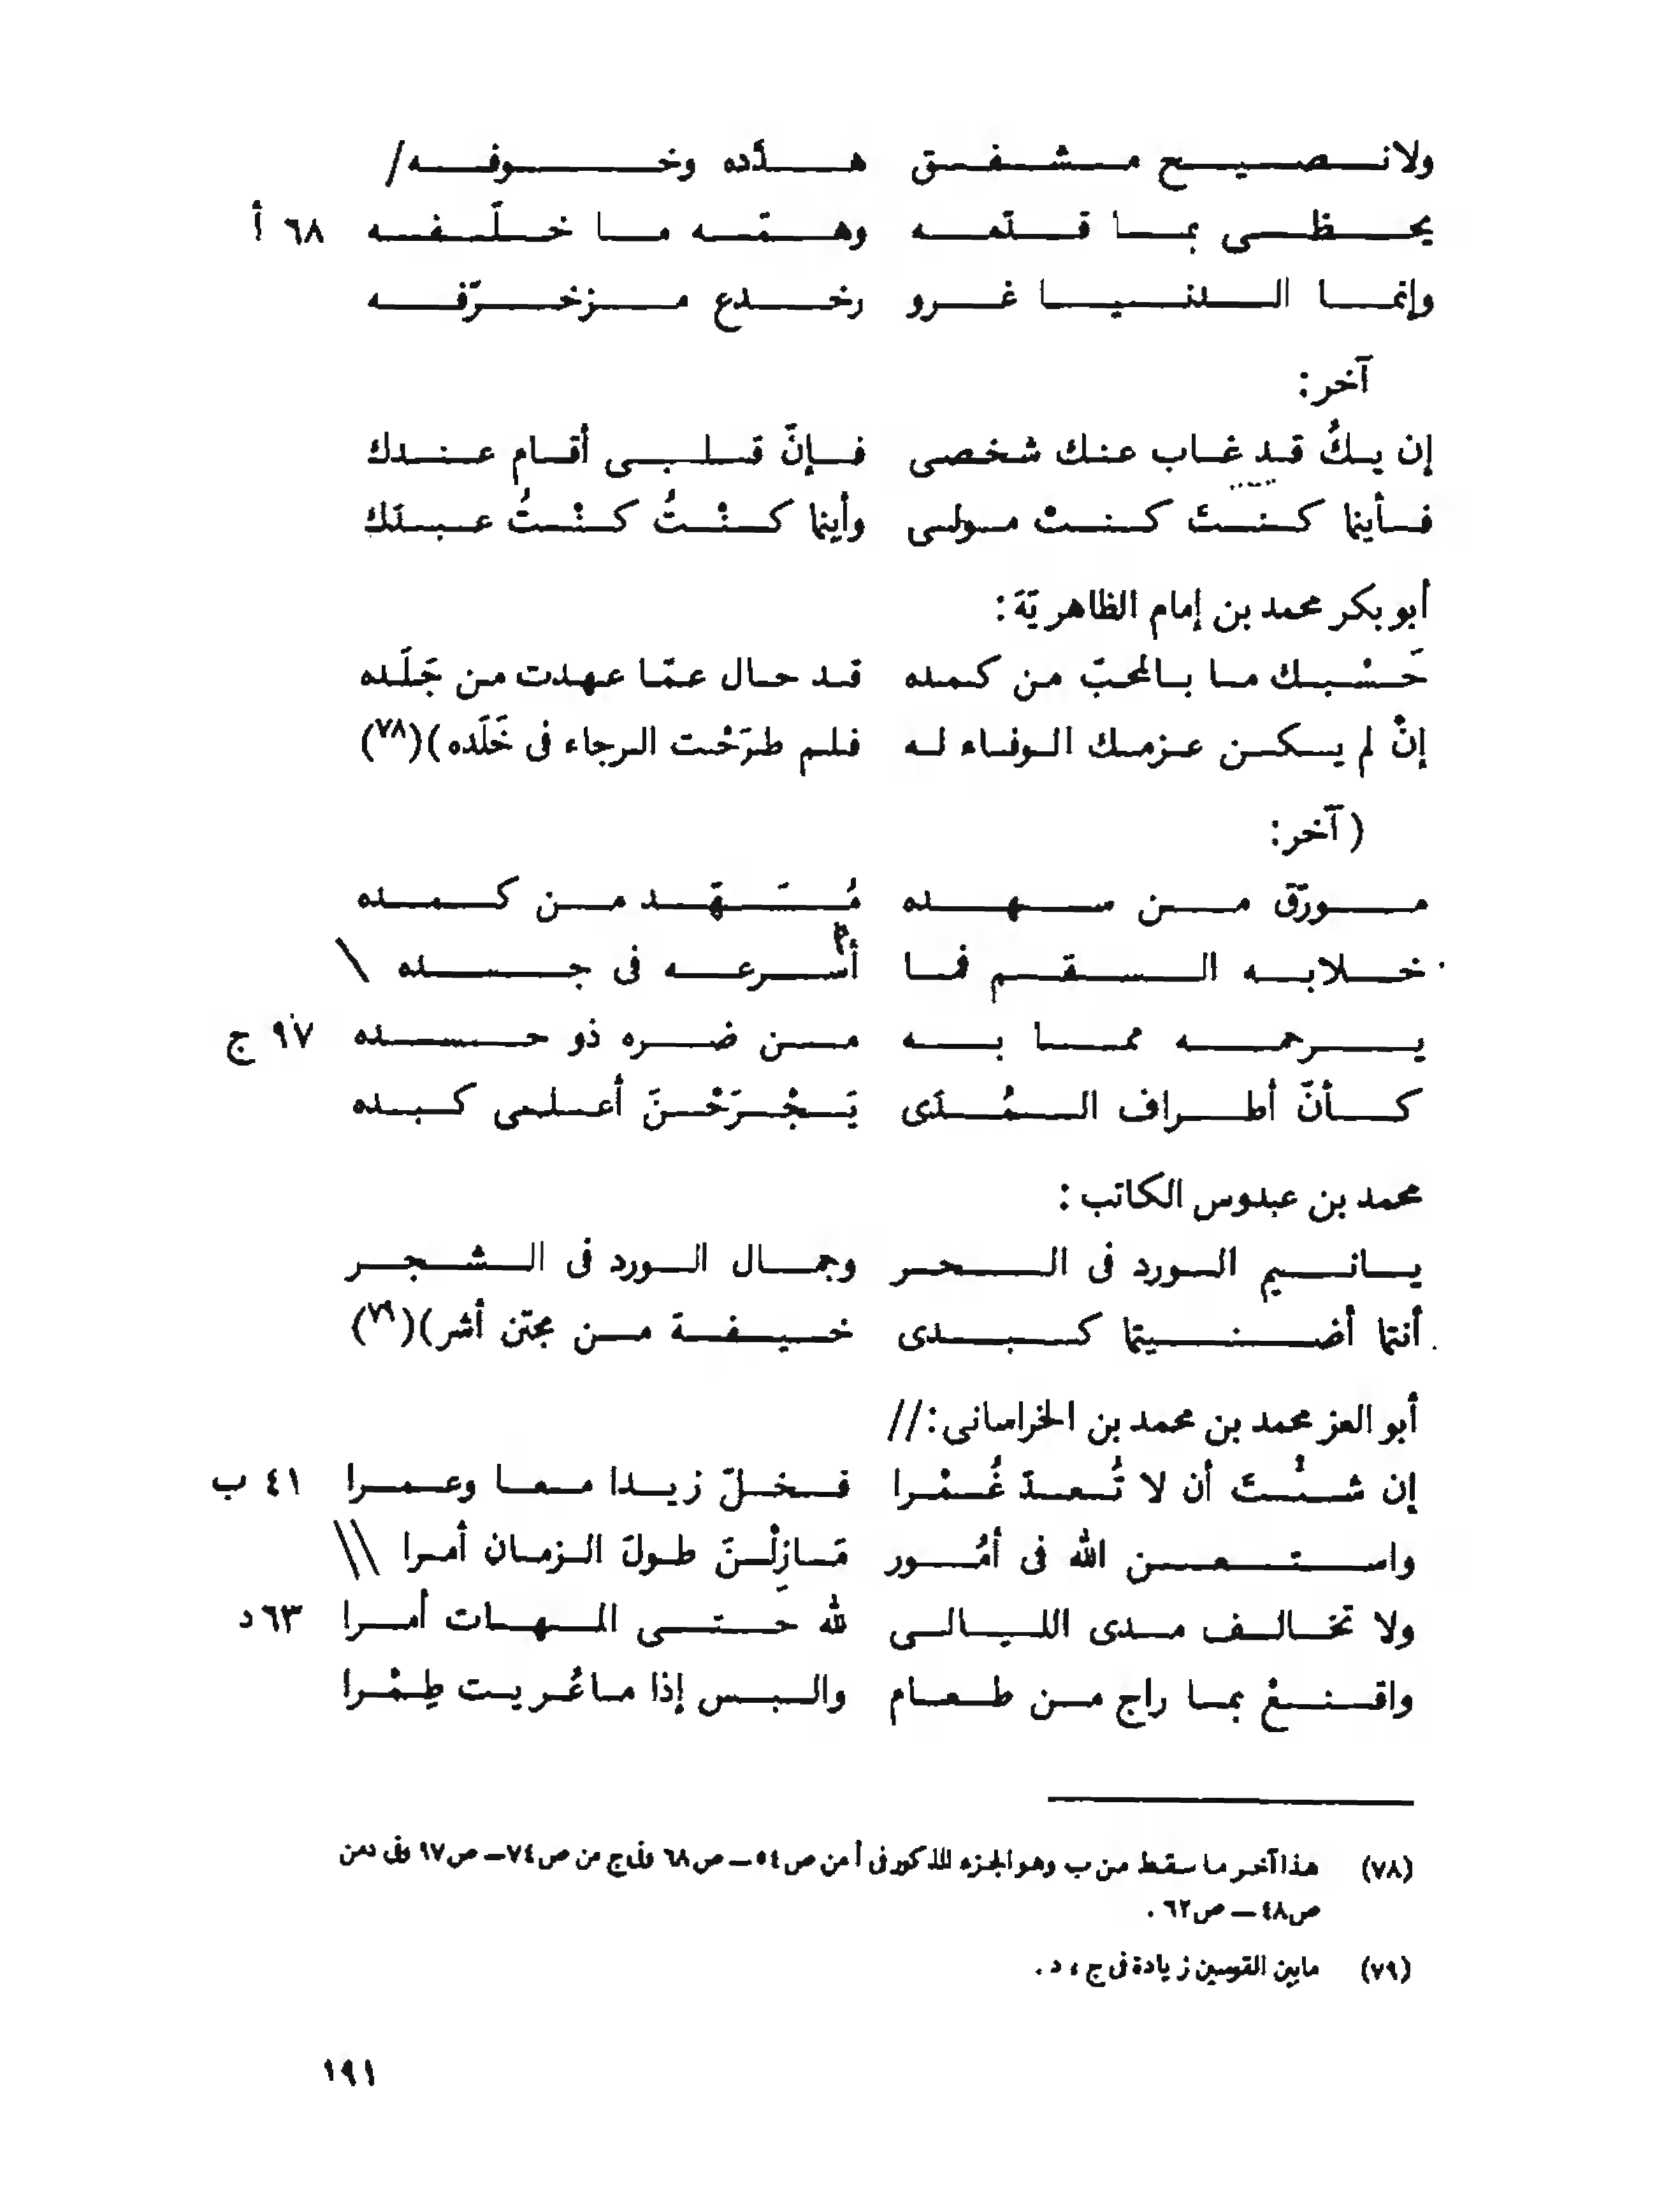 ولا نصيح مشفق هدّده وخوفه/
يحظى بما قدّمه وهمّه ما خلّفه ٦٨ أ
وإنما الدنيا غرو رخدع مزخرّفه
آخر:
إن يكُ قد غاب عنك شخصى فإنّ قلبى أقام عندك
فأينما كنتَ كنتْ مولى وأينما كنْتُ كنْتُ عبدَك
أبو بكر محمد بن إمام الظاهريّة:
حَسْبك ما بالمحبّ من كمده قد حال عمّا عهدت من جَلَده
إنْ لم يكن عزمك الوفاء له فلم طرَحْت الرجاء فى خَلَده)(٧٨)
(آخر:
مورّق من سهده مُسَهّد من كمده
خلابه السقم فما أسرعه فى جسده \
يرحمه مما به من ضره ذو حسده ٩٧ ج
كأنّ أطراف المُدَى يَجْرَحْنَ أعلى كبده
محمد بن عبدوس الكاتب:
يا نسيم الورد فى السحر وجمال الورد فى الشجر
أنتما أضنيتما كبدى خيفة من مجتن أشر)(٧٩)
أبو العز محمد بن محمد بن الخراسانى://
إن شئْتَ أن لا تُعدّ غُمْرا فخلّ زيدا معا وعمرا ٤١ ب
واستعن الله فى أمُور مَازِلْنَ طولَ الزمان أمرا \\
ولا تخالف مدى الليالى لله حتى المهات أمرا ٦٣ د
واقنعْ بما راج من طعام والبس إذا ماعُريت طِمْرا
(٧٨) هذا آخر ما سقط من ب وهو الجزء المذكور فى أ من ص٥٤ــ ص٦٨ وفى ج من ص٧٤ــ ص٩٧ وفى د من
ص٤٨ ــ ص٦٢ .
(٧٩) مابين القوسين زيادة فى ج ، د .
١٩١